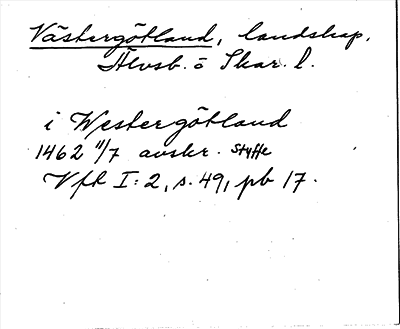 Västergötland, landskap.
Älvsb. o Skar. l.
i Westergötland
1462 11/7 avskr. Styffe
Vfk I: 2, s. 49, pb 17.